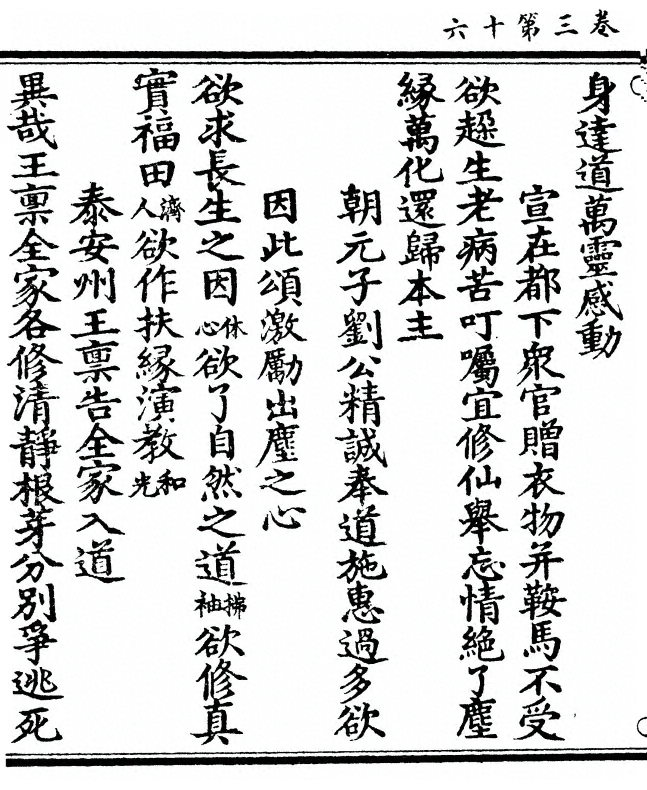 卷三第十六
身達道萬靈感動
宣在都下衆官贈衣物并鞍馬不受
欲超生老病苦叮囑宜修仙舉忘情絕了塵
緣萬化還歸本主
朝元子劉公精誠奉道施惠過多欲
因此頌激勵出塵之心
欲求長生之因休心欲了自然之道拂袖欲修真
實福田濟人欲作扶緣演教和光
泰安州王禀告全家入道
異哉王禀全家各修清靜根芽分別爭逃死